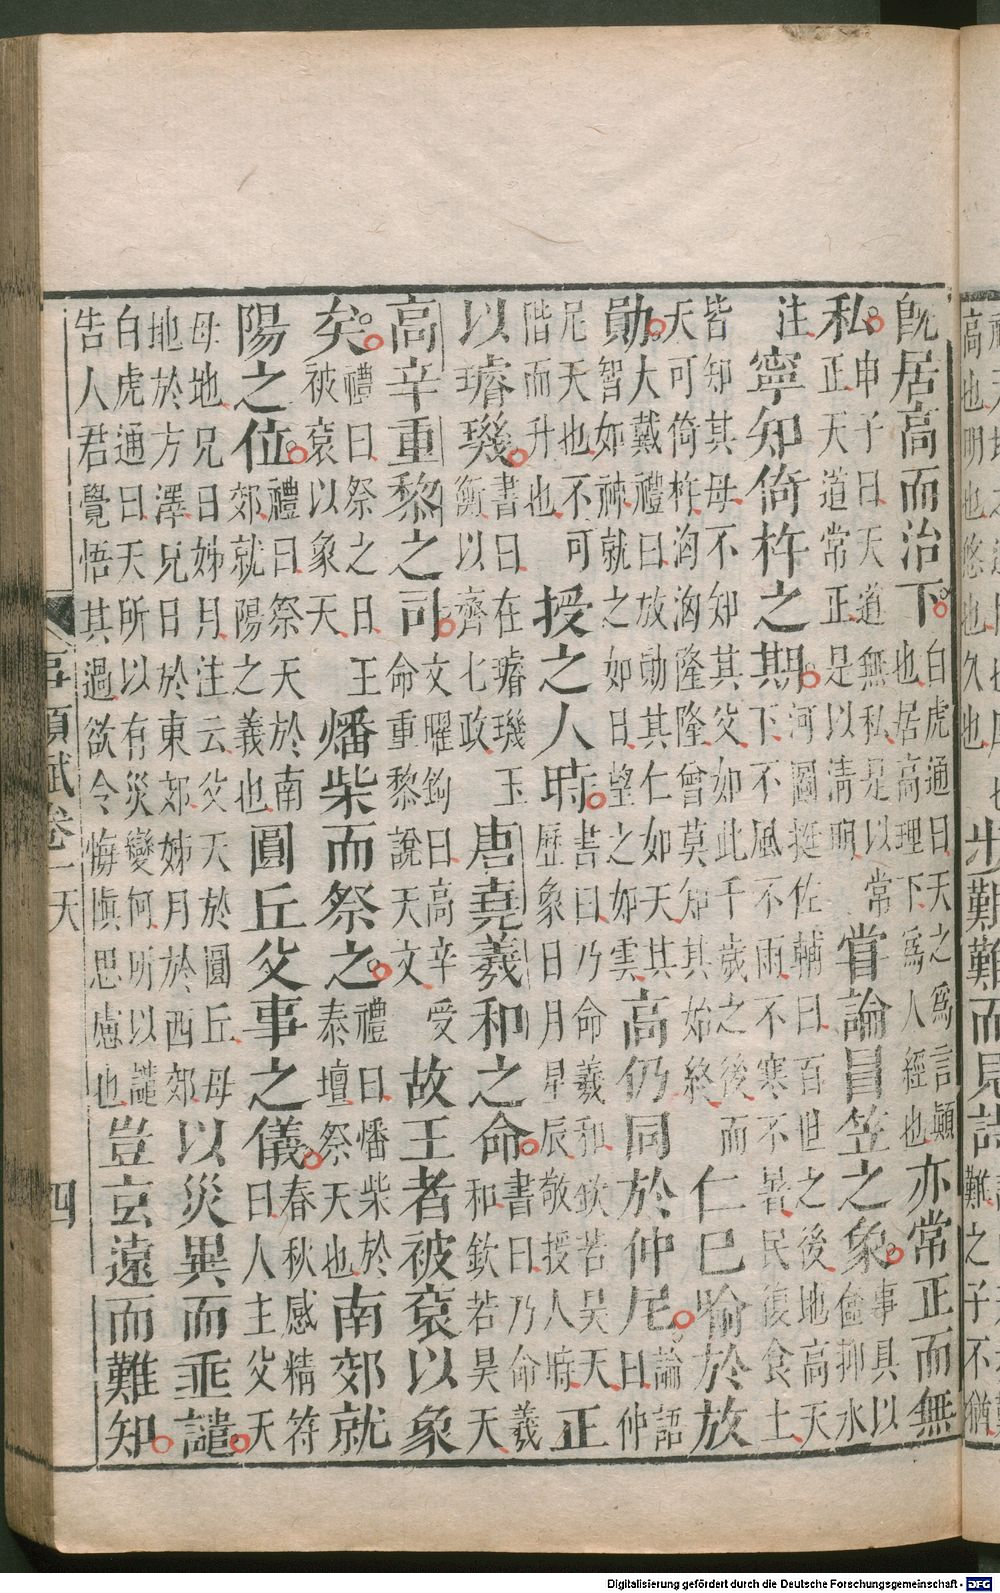 高也明也悠也久也
既居高而治下白虎通曰天之為言顛也居高理下為人經也亦常正而無
私申子曰天道無私是以常正天道常正是以清明嘗論昌笠之象事具以儘抑水
注寧知倚杵之期河圖挺佐輔曰百世之後地高天下不風不雨不寒不暑民復食土
皆知其母不知其父如此千歲之後而天可倚杵洶洶隆隆曾莫知其始終仁已喻於放
勛大戴禮曰放勛其仁如天其智如神就之如日望之如雲高仍同於仲尼論語曰仲
尼天也不可階而升也授之人時書曰乃命羲和欽若昊天歷象日月星辰敬授人時正
以璿璣書曰在璿璣玉衡以齊七政唐堯羲和之命書曰乃命羲和欽若昊天
高辛重黎之司文曜鉤曰高辛受命重黎說天文故王者被袞以象
矣禮曰祭之日王被袞以象天燔柴而祭之禮曰燔柴於泰壇祭天也南郊就
陽之位禮曰祭天於南郊就陽之義也圓丘父事之儀春秋感精符曰人主父天
母地兄日姊月注云父天於圓丘母地於方澤兄日於東郊姊月於西郊以災異而乖譴
白虎通曰天所以有災變何所以譴告人君覺悟其過欲令悔慎思慮也豈玄遠而難知
事類賦卷一天 四
Digitalisierung gefördert durch die Deutsche Forschungsgemeinschaft - DFG